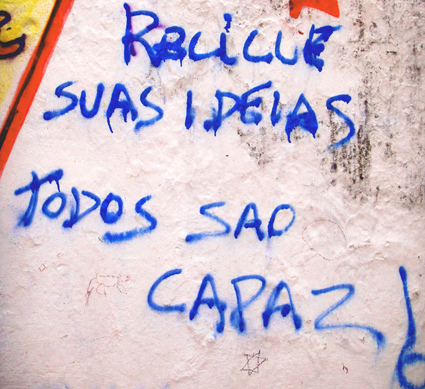 RECICLE
SUAS IDEIAS
TODOS SAO
CAPAZ!